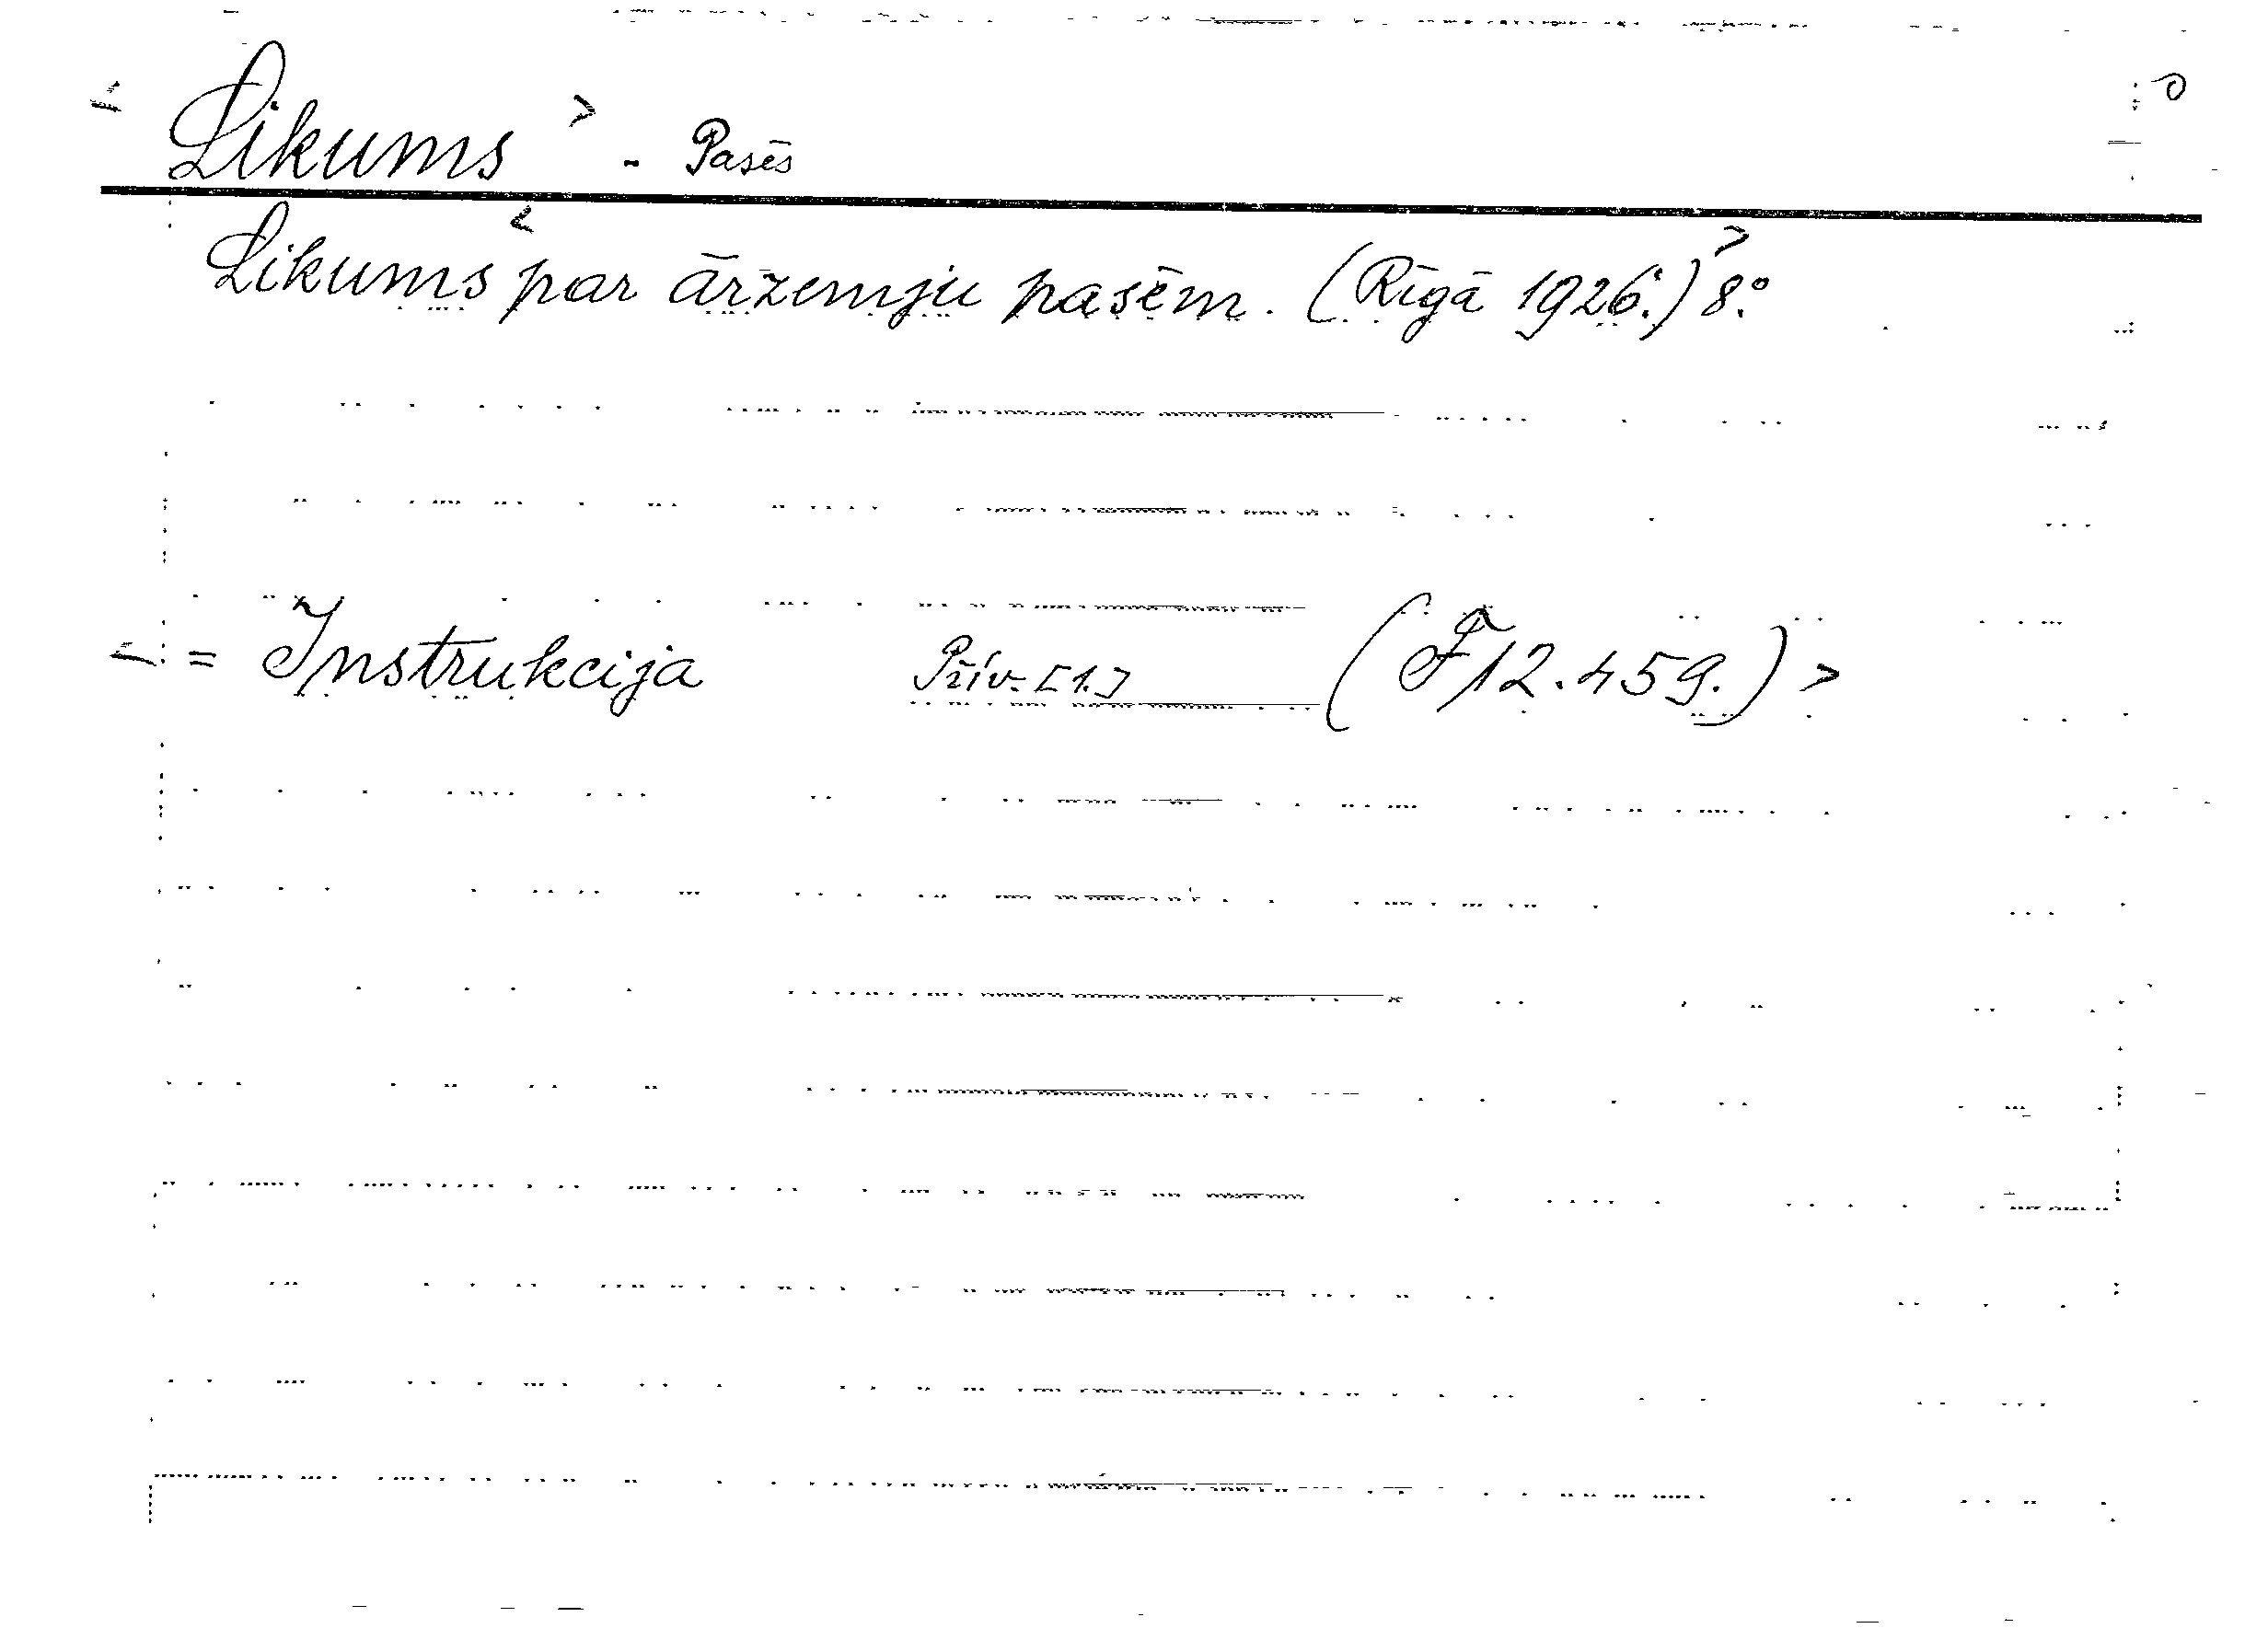 < Likums > - Pasēs
< Likums par ārzemju pasēm. (Rīgā 1926.) 8.° >
< = Instrukcija Přív. [1.] (F 12.459.) >